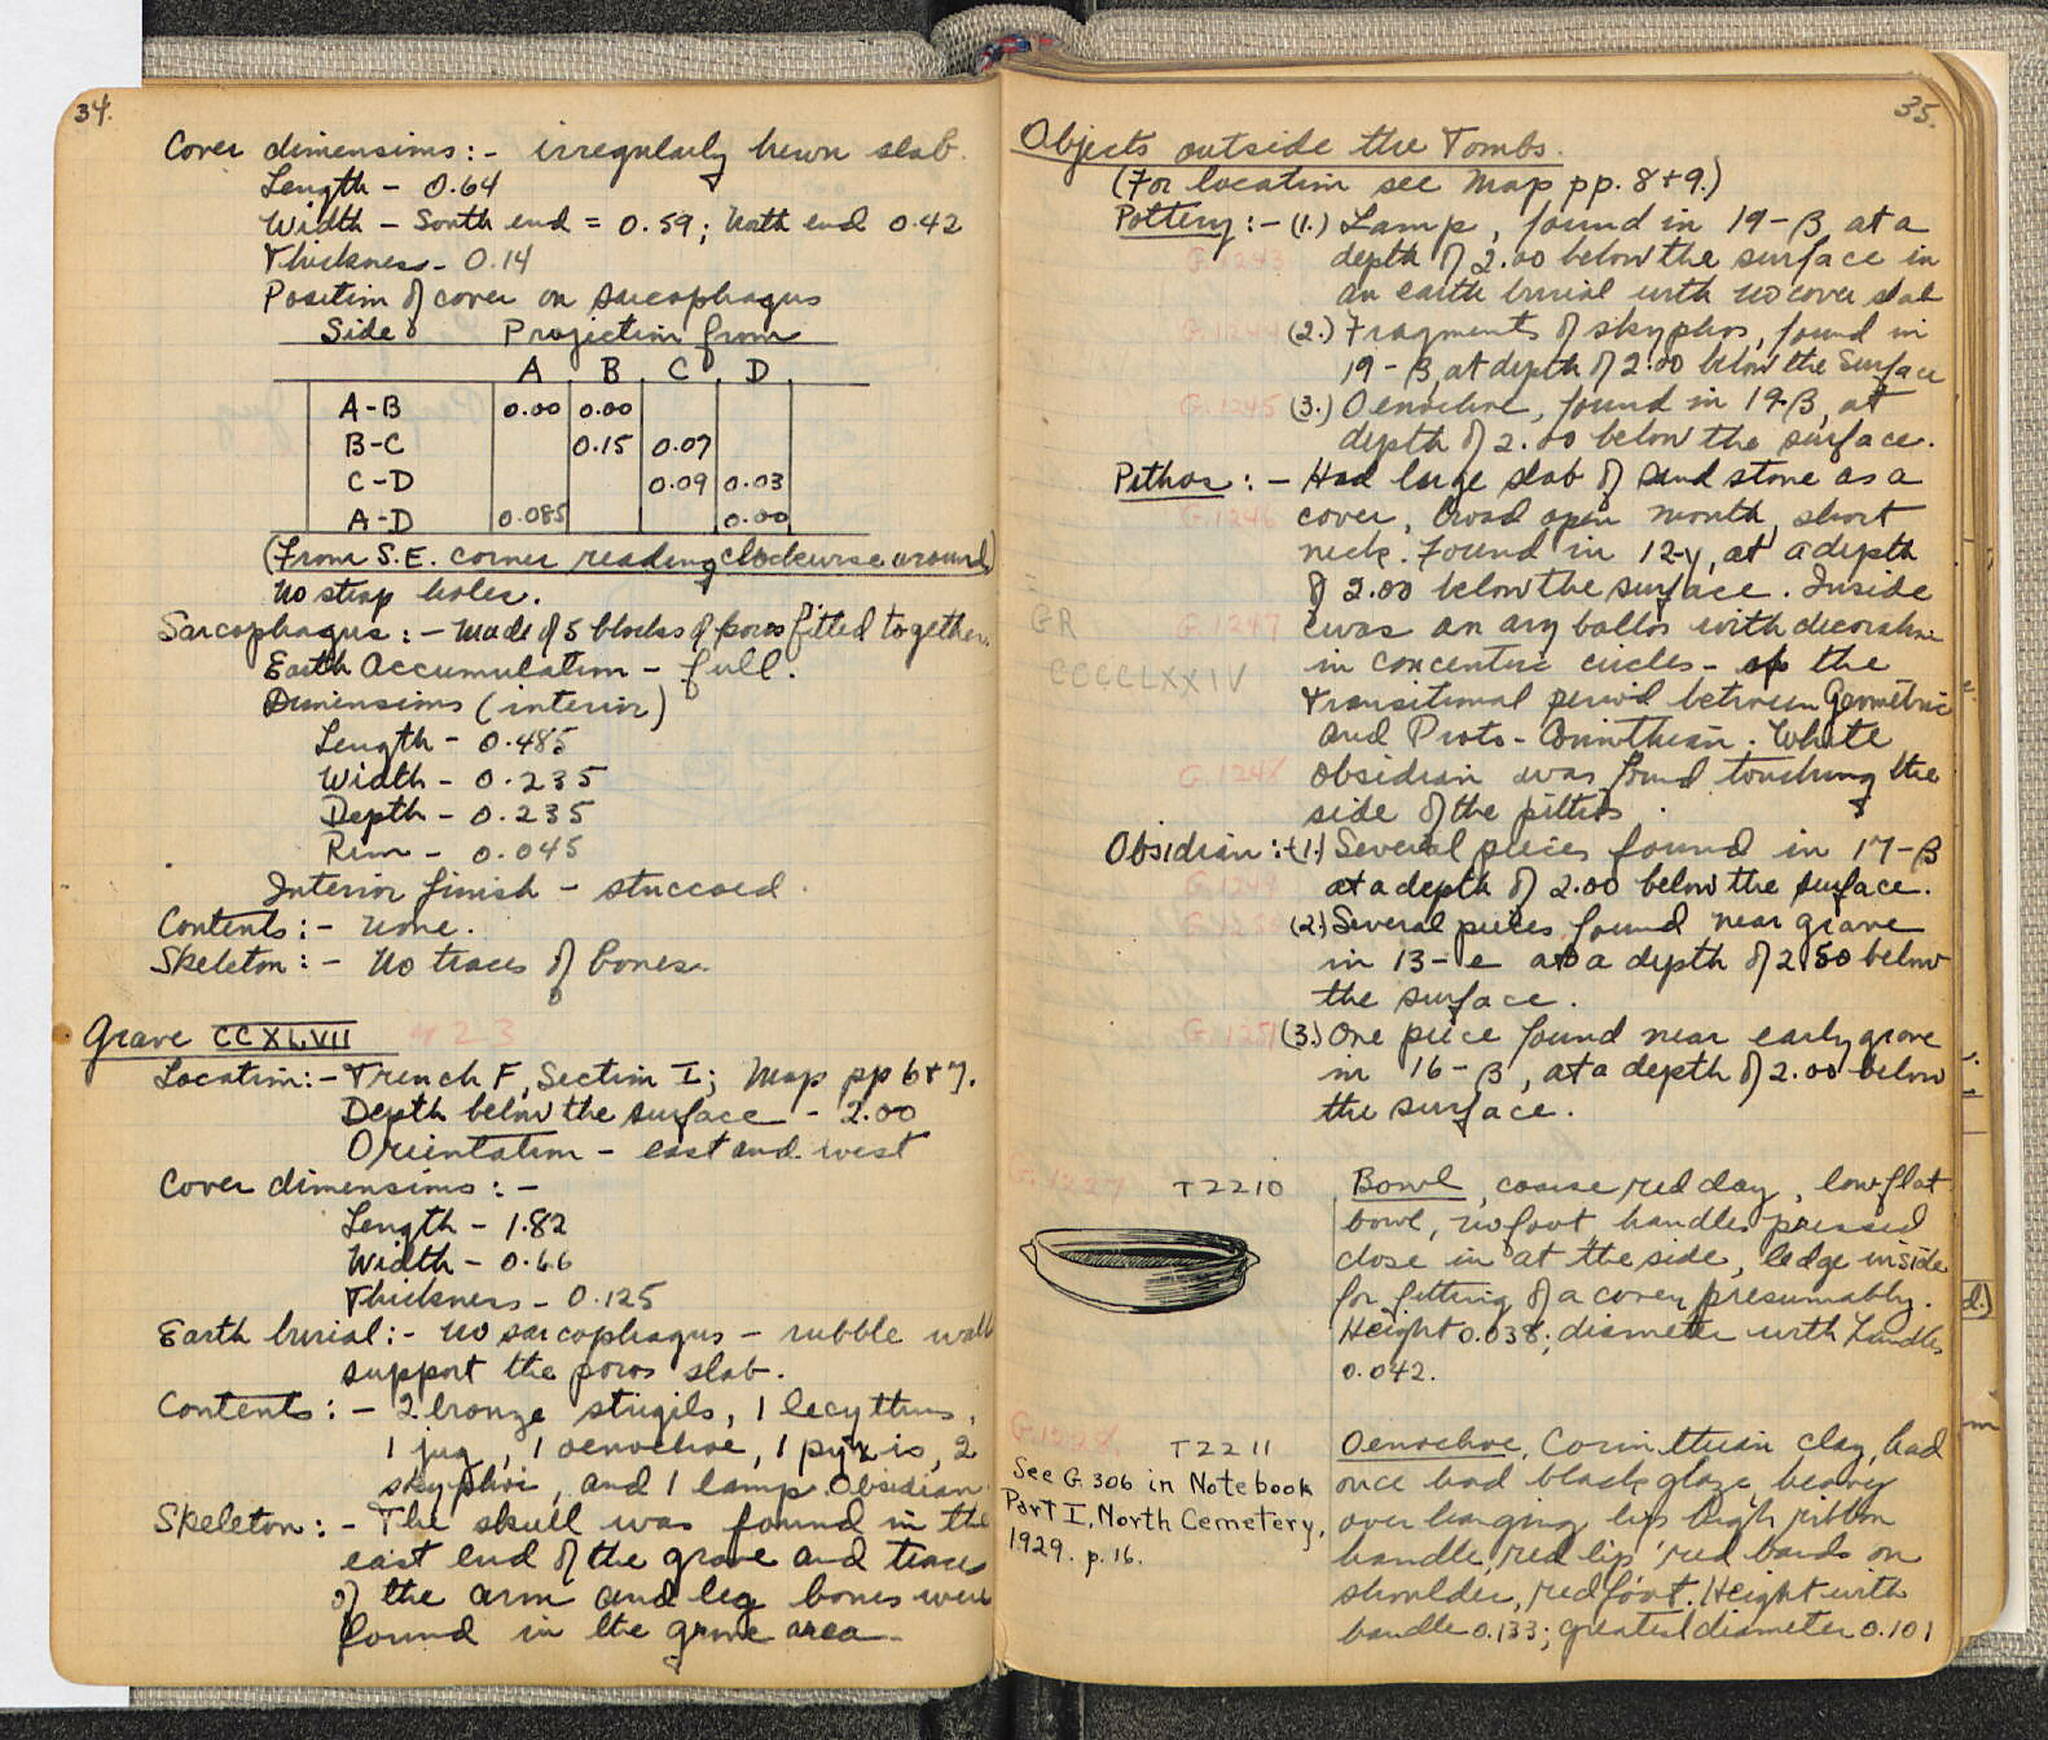 34.
Cover dimensions:- irregularly hewn slab.
Length - 0.64
Width - South end = 0.59; North end 0.42
Thickness - 0.14
Position of cover on sarcophagus
Side Projection from
A B C D
A-B 0.00 0.00
B-C 0.15 0.07
C-D 0.09 0.03
A-D 0.085 0.00
(From S.E. corner reading clockwise around)
No strap holes.
Sarcophagus:- Made of 5 blocks of poros fitted together.
Earth Accumulation - full.
Dimensions (interior)
Length - 0.485
Width - 0.235
Depth - 0.235
Rim - 0.045
Interior finish - stuccoed.
Contents:- None.
Skeleton:- No traces of bones.
Grave CCXLVII 423
Location:- Trench F, Section I; Map pp 6+7.
Depth below the surface - 2.00
Orientation - east and west
Cover dimensions:-
Length - 1.82
Width - 0.66
Thickness - 0.125
Earth burial:- No sarcophagus - rubble wall
support the poros slab.
Contents:- 2 bronze strigils, 1 lecythus,
1 jug, 1 oenochoe, 1 pyxis, 2
skyphoi, and 1 lamp. Obsidian
Skeleton:- The skull was found in the
east end of the grave and traces
of the arm and leg bones were
found in the grave area.
35.
Objects outside the Tombs.
(For location see Map pp. 8+9.)
Pottery:- (1.) Lamp, found in 19-β, at a
G.1243 depth of 2.00 below the surface in
an earth burial with no cover slab
G.1244 (2.) Fragments of skyphos, found in
19-β, at depth of 2.00 below the surface
G.1245 (3.) Oenochoe, found in 19-β, at
depth of 2.00 below the surface.
Pithos:- Had large slab of sand stone as a
G.1246 cover, broad open mouth, short
neck. Found in 12-γ, at a depth
of 2.00 below the surface. Inside
GR G.1247 was an aryballos with decoration
CCCCLXXIV in concentric circles - of the
transitional period between Geometric
and Proto-Corinthian. White
G.1248 obsidian was found touching the
side of the pithos.
Obsidian:- (1.) Several pieces found in 17-β
G.1249 at a depth of 2.00 below the surface.
G.1250 (2.) Several pieces found near grave
in 13-e at a depth of 2.50 below
the surface.
G.1251 (3.) One piece found near early grave
in 16-β, at a depth of 2.00 below
the surface.
G.1227 T2210 Bowl, coarse red clay, low flat
bowl, no foot, handles pressed
close in at the side, ledge inside
for fitting of a cover, presumably.
Height 0.038; diameter with handles
0.042.
G.1228 T2211 Oenochoe, Corinthian clay, had
See G.306 in Notebook
Part I, North Cemetery,
1929. p.16.
once had black glaze, heavy
over hanging lip, high ribbon
handle, red lip, red bands on
shoulder, red foot. Height with
handle 0.133; greatest diameter 0.101